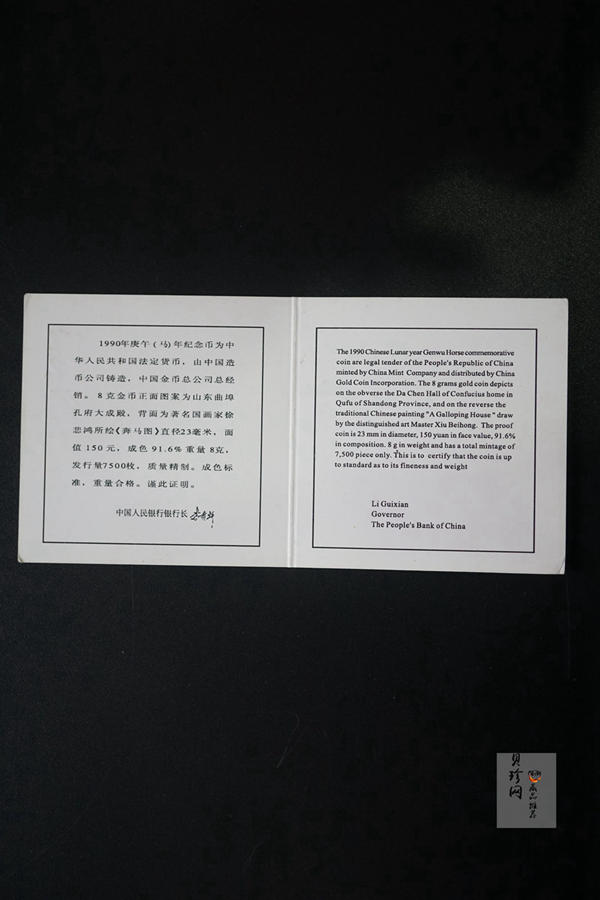 1990年庚午(马)年纪念币为中
华人民共和国法定货币，由中国造
币公司铸造，中国金币总公司总经
销。8克金币正面图案为山东曲埠
孔府大成殿，背面为著名国画家徐
悲鸿所绘《奔马图》直径23毫米，面
值150元，成色91.6%重量8克，
发行量7500枚，质量精制。成色标
准，重量合格。谨此证明。
中国人民银行银行长
The 1990 Chinese Lunar year Genwu Horse commemorative
coin are legal tender of the People's Republic of China
minted by China Mint Company and distributed by China
Gold Coin Incorporation. The 8 grams gold coin depicts
on the obverse the Da Chen Hall of Confucius home in
Qufu of Shandong Province, and on the reverse the
traditional Chinese painting "A Galloping House" draw
by the distinguished art Master Xiu Beihong. The proof
coin is 23 mm in diameter, 150 yuan in face value, 91.6%
in composition. 8 g in weight and has a total mintage of
7,500 piece only. This is to certify that the coin is up
to standard as to its fineness and weight
Li Guixian
Governor
The People's Bank of China
贝珍网
藏品推荐